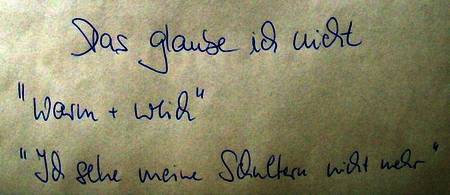 Das glaube ich nicht
"Warm + weich"
"Ich sehe meine Schultern nicht mehr"